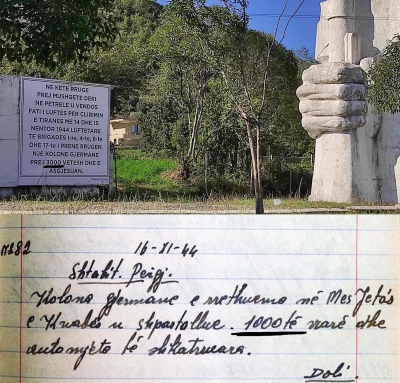 NE KETE RRUGE
PREJ MUSHQETE DERI
NE PETRELE U VENDOS
FATI I LUFTES PER CLIRIMIN
E TIRANES ME 14 DHE 15
NENTOR 1944 LUFTETARE
TE BRIGADES I-re, 4-te, 8-te
DHE 17-te I PRENE RRUGEN
NJE KOLONE GJERMANE
PREJ 3000 VETESH DHE E
ASGJESUAN.
Nr82
16-XI-44
Shtabit. Përgj.
Kolona gjermane e rrethueme në Mes Jetës
e Krrabës u shpastollue. 1000 të vrarë dhe
automjete të shkatrruara.
Doli.